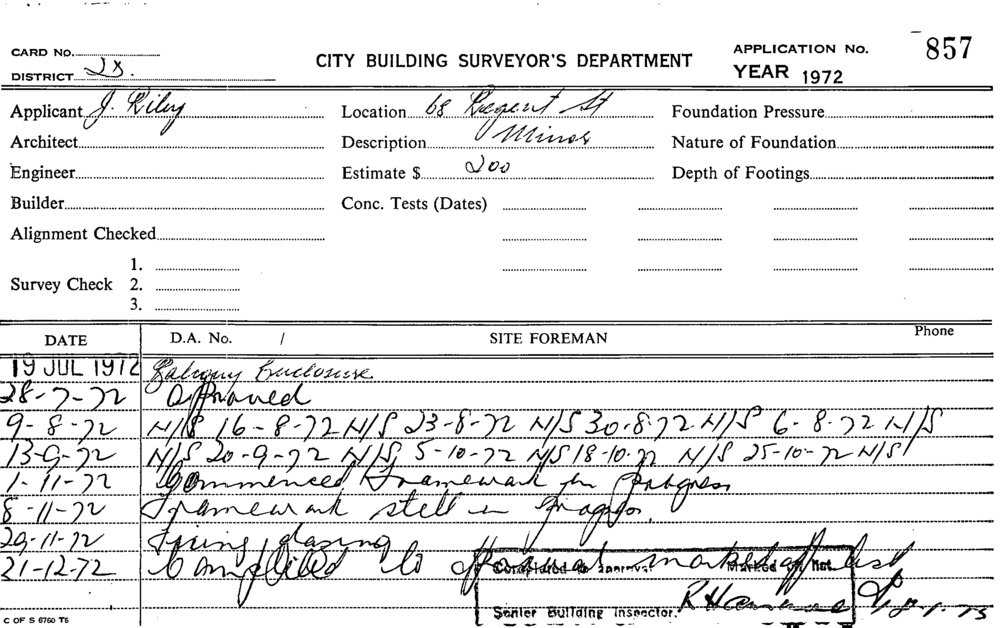 CARD No.
DISTRICT 2B.
CITY BUILDING SURVEYOR'S DEPARTMENT
APPLICATION No. 857
YEAR 1972
Applicant J. Riley
Location 68 Regent St
Foundation Pressure
Architect
Description Minor
Nature of Foundation
Engineer
Estimate $ 200
Depth of Footings
Builder
Conc. Tests (Dates)
Alignment Checked
Survey Check 1.
2.
3.
DATE D.A. No. / SITE FOREMAN Phone
19 JUL 1972 Balcony Enclosure
28-7-72 Approved
9-8-72 N/S 16-8-72 N/S 23-8-72 N/S 30-8-72 N/S 6-8-72 N/S
13-9-72 N/S 20-9-72 N/S 5-10-72 N/S 18-10-72 N/S 25-10-72 N/S
1-11-72 Commenced Framework in Progress
8-11-72 Framework still in Progress.
29-11-72 Fixing glazing
21-12-72 Completed to approval marked off list
Completed to approval Marked off list
Senior Building Inspector.
C OF S 6760 T6